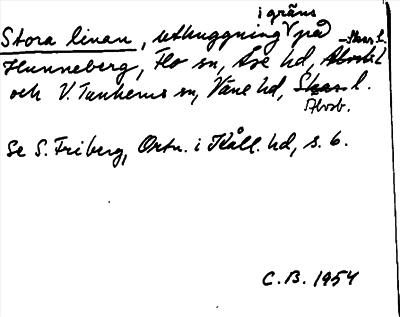 i gräns
Stora linan, uthuggning på
Hunneberg, Flo sn, Åse hd, Älvsb. l. Skar. l.
och V. Tunhems sn, Väne hd, Skar. l.
Älvsb.
Se S. Friberg, Ortn. i Kåll. hd, s. 6.
C.B. 1954